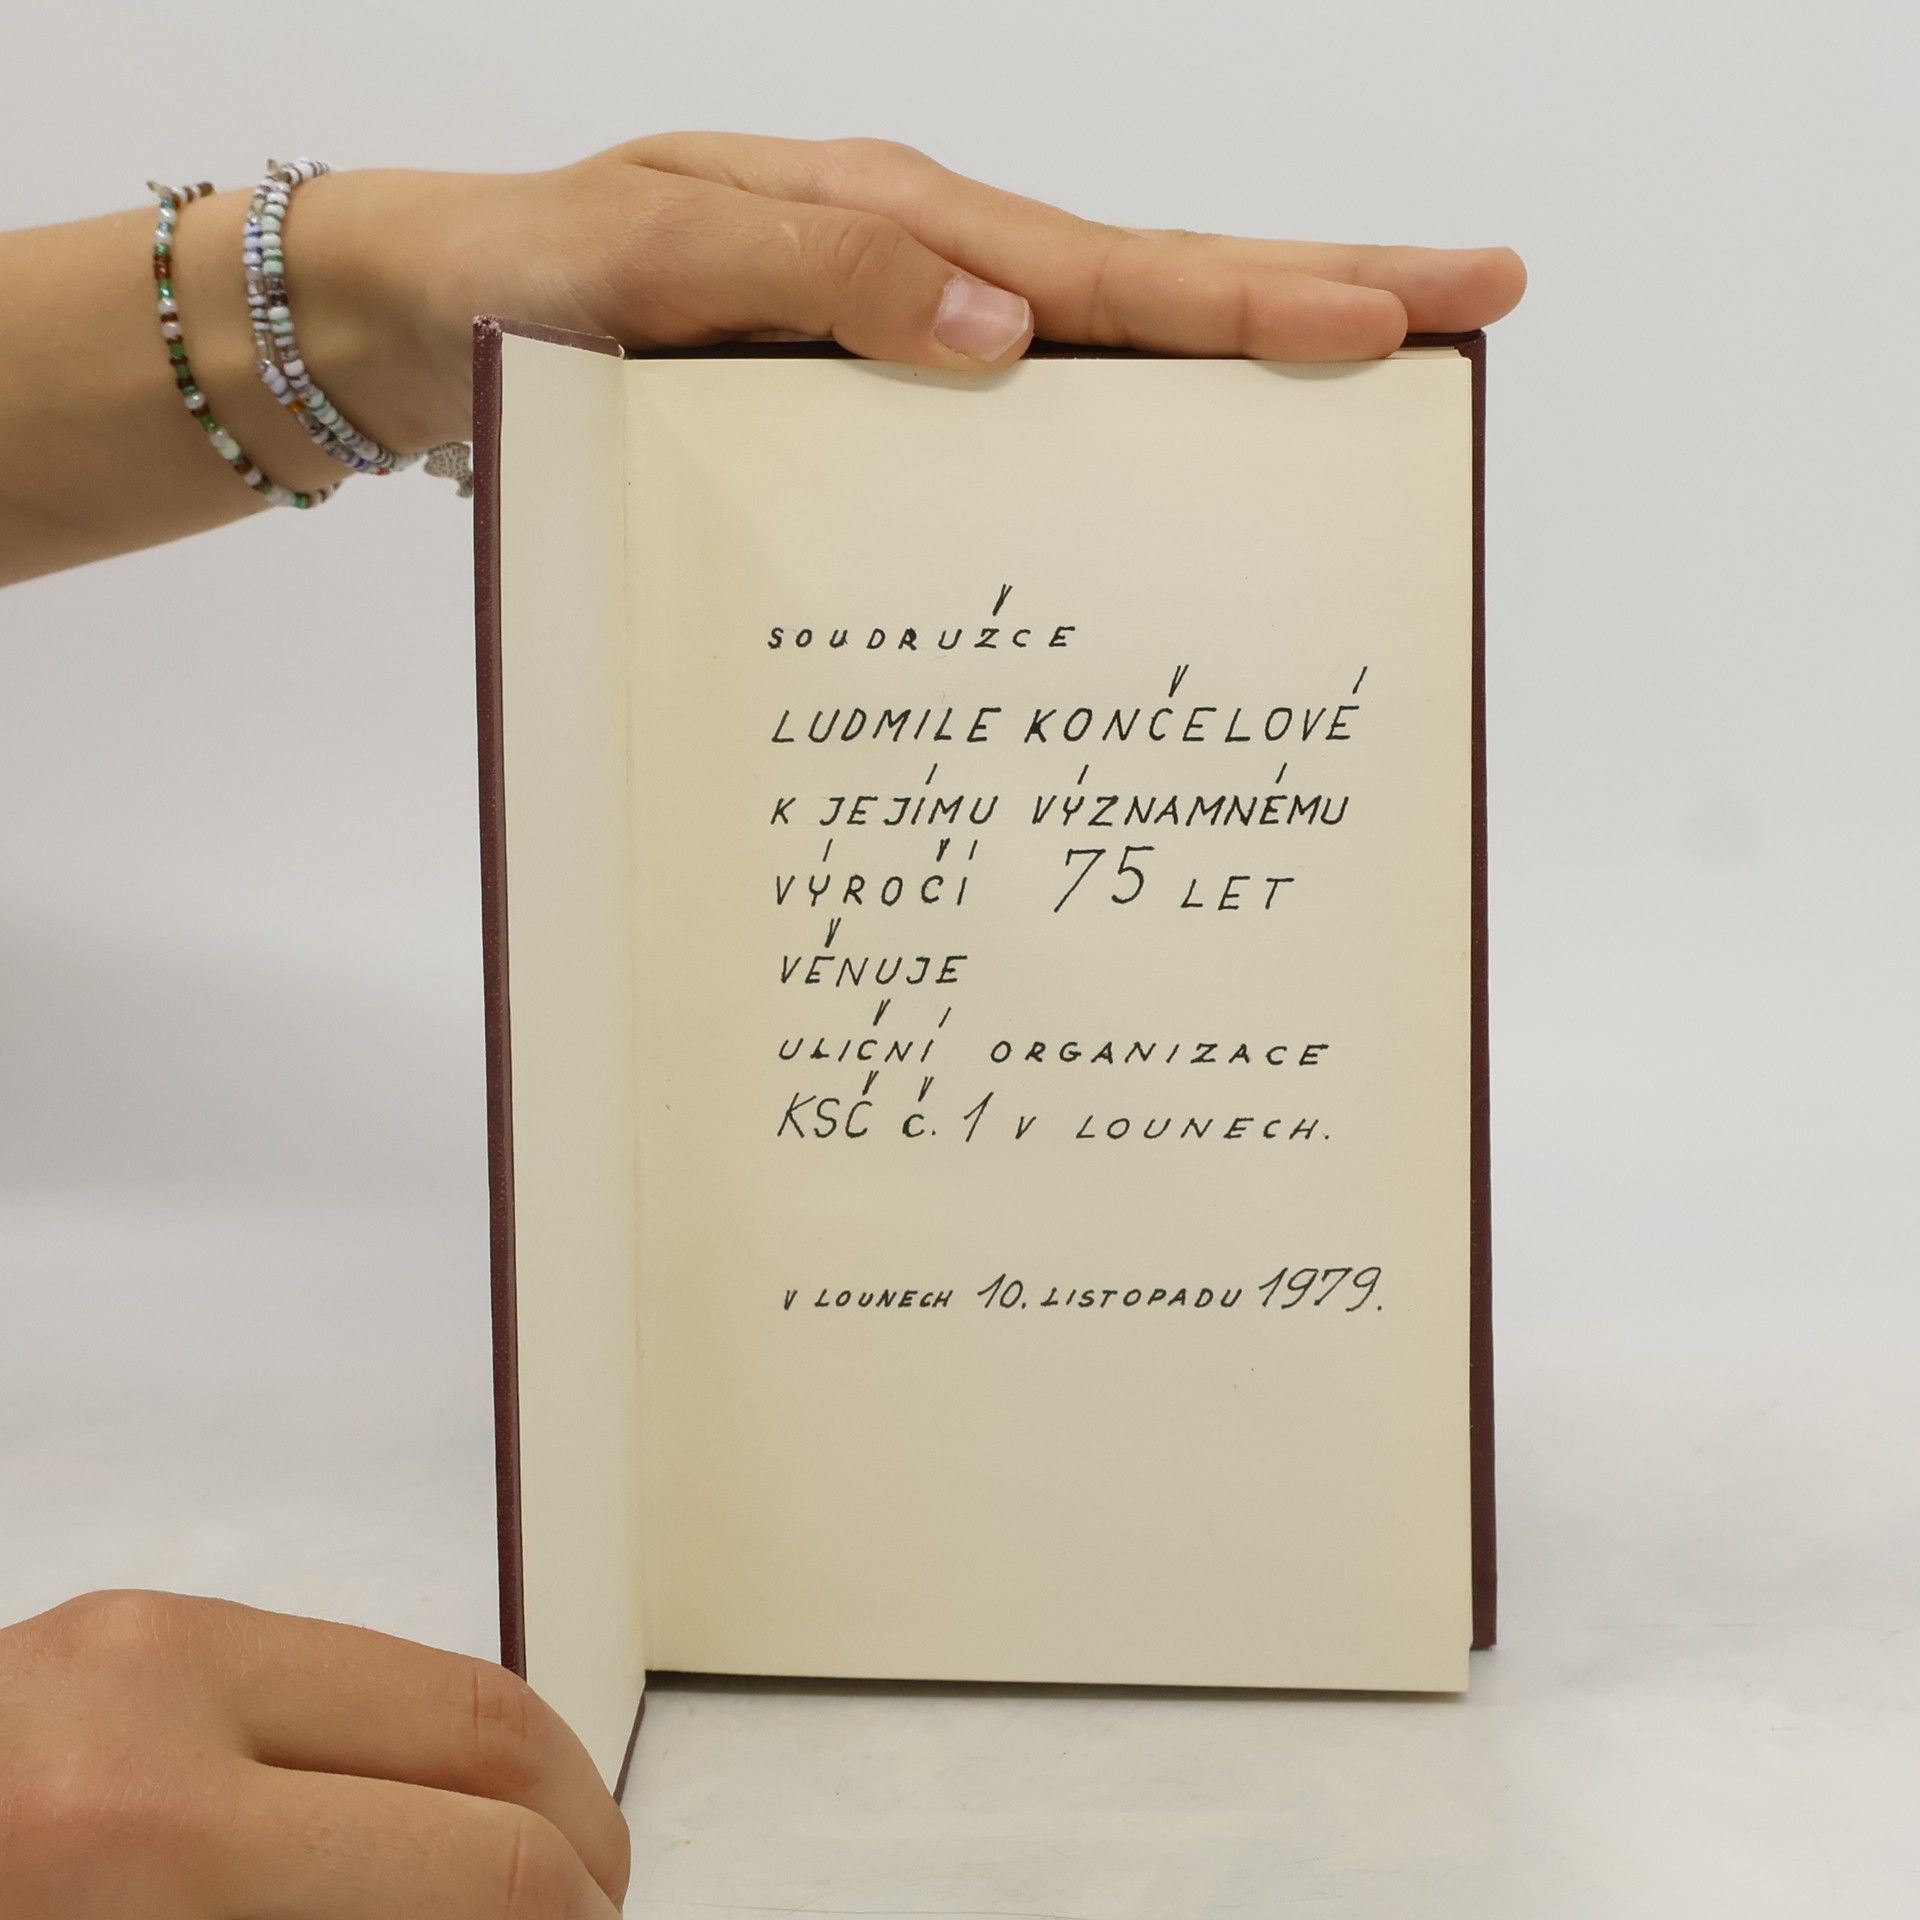 SOUDRUŽCE
LUDMILE KONČELOVÉ
K JEJÍMU VÝZNAMNÉMU
VÝROČÍ 75 LET
VĚNUJE
ULIČNÍ ORGANIZACE
KSČ č. 1 V LOUNECH.
V LOUNECH 10. LISTOPADU 1979.